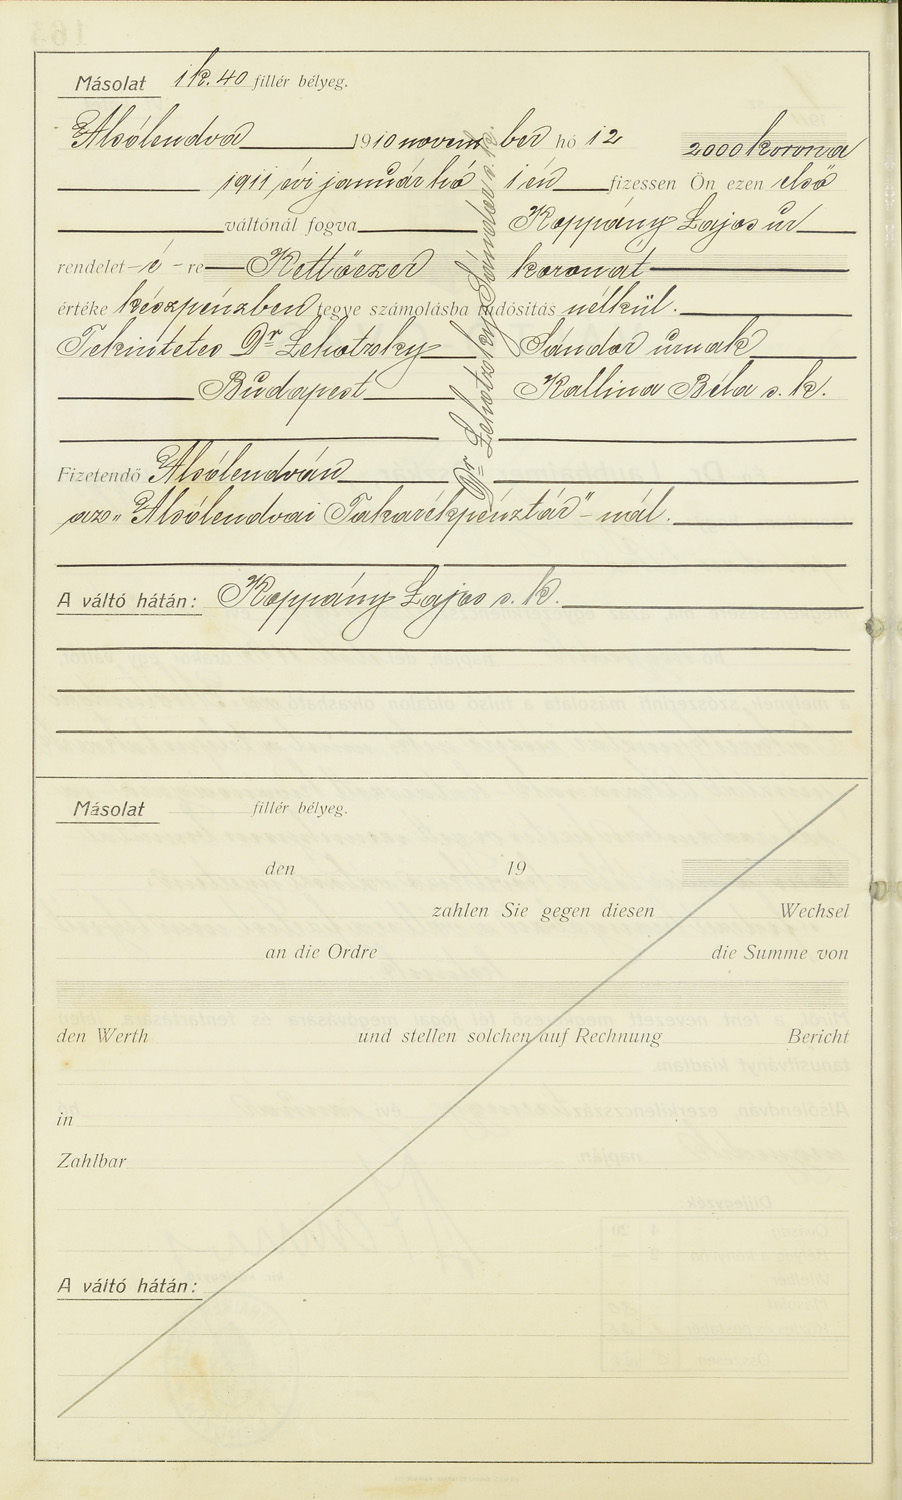 Másolat 1 k. 40 fillér bélyeg.
Alsólendva 1910 november hó 12 2000 korona
1911 évi január hó 1 én fizessen Ön ezen első
váltónál fogva Koppány Lajos úr
rendelet-é-re Kettőezer koronát
értéke készpénzben tegye számolásba tudósítás nélkül.
Tekintetes Dr Lehotzky Sándor urnak
Budapest Kallina Béla s. k.
Dr Lehotzky Sándor s. k.
Fizetendő Alsólendván
az „Alsólendvai Takarékpénztár"-nál.
A váltó hátán: Koppány Lajos s. k.
Másolat fillér bélyeg.
den 19
zahlen Sie gegen diesen Wechsel
an die Ordre die Summe von
den Werth und stellen solchen auf Rechnung Bericht
in
Zahlbar
A váltó hátán: